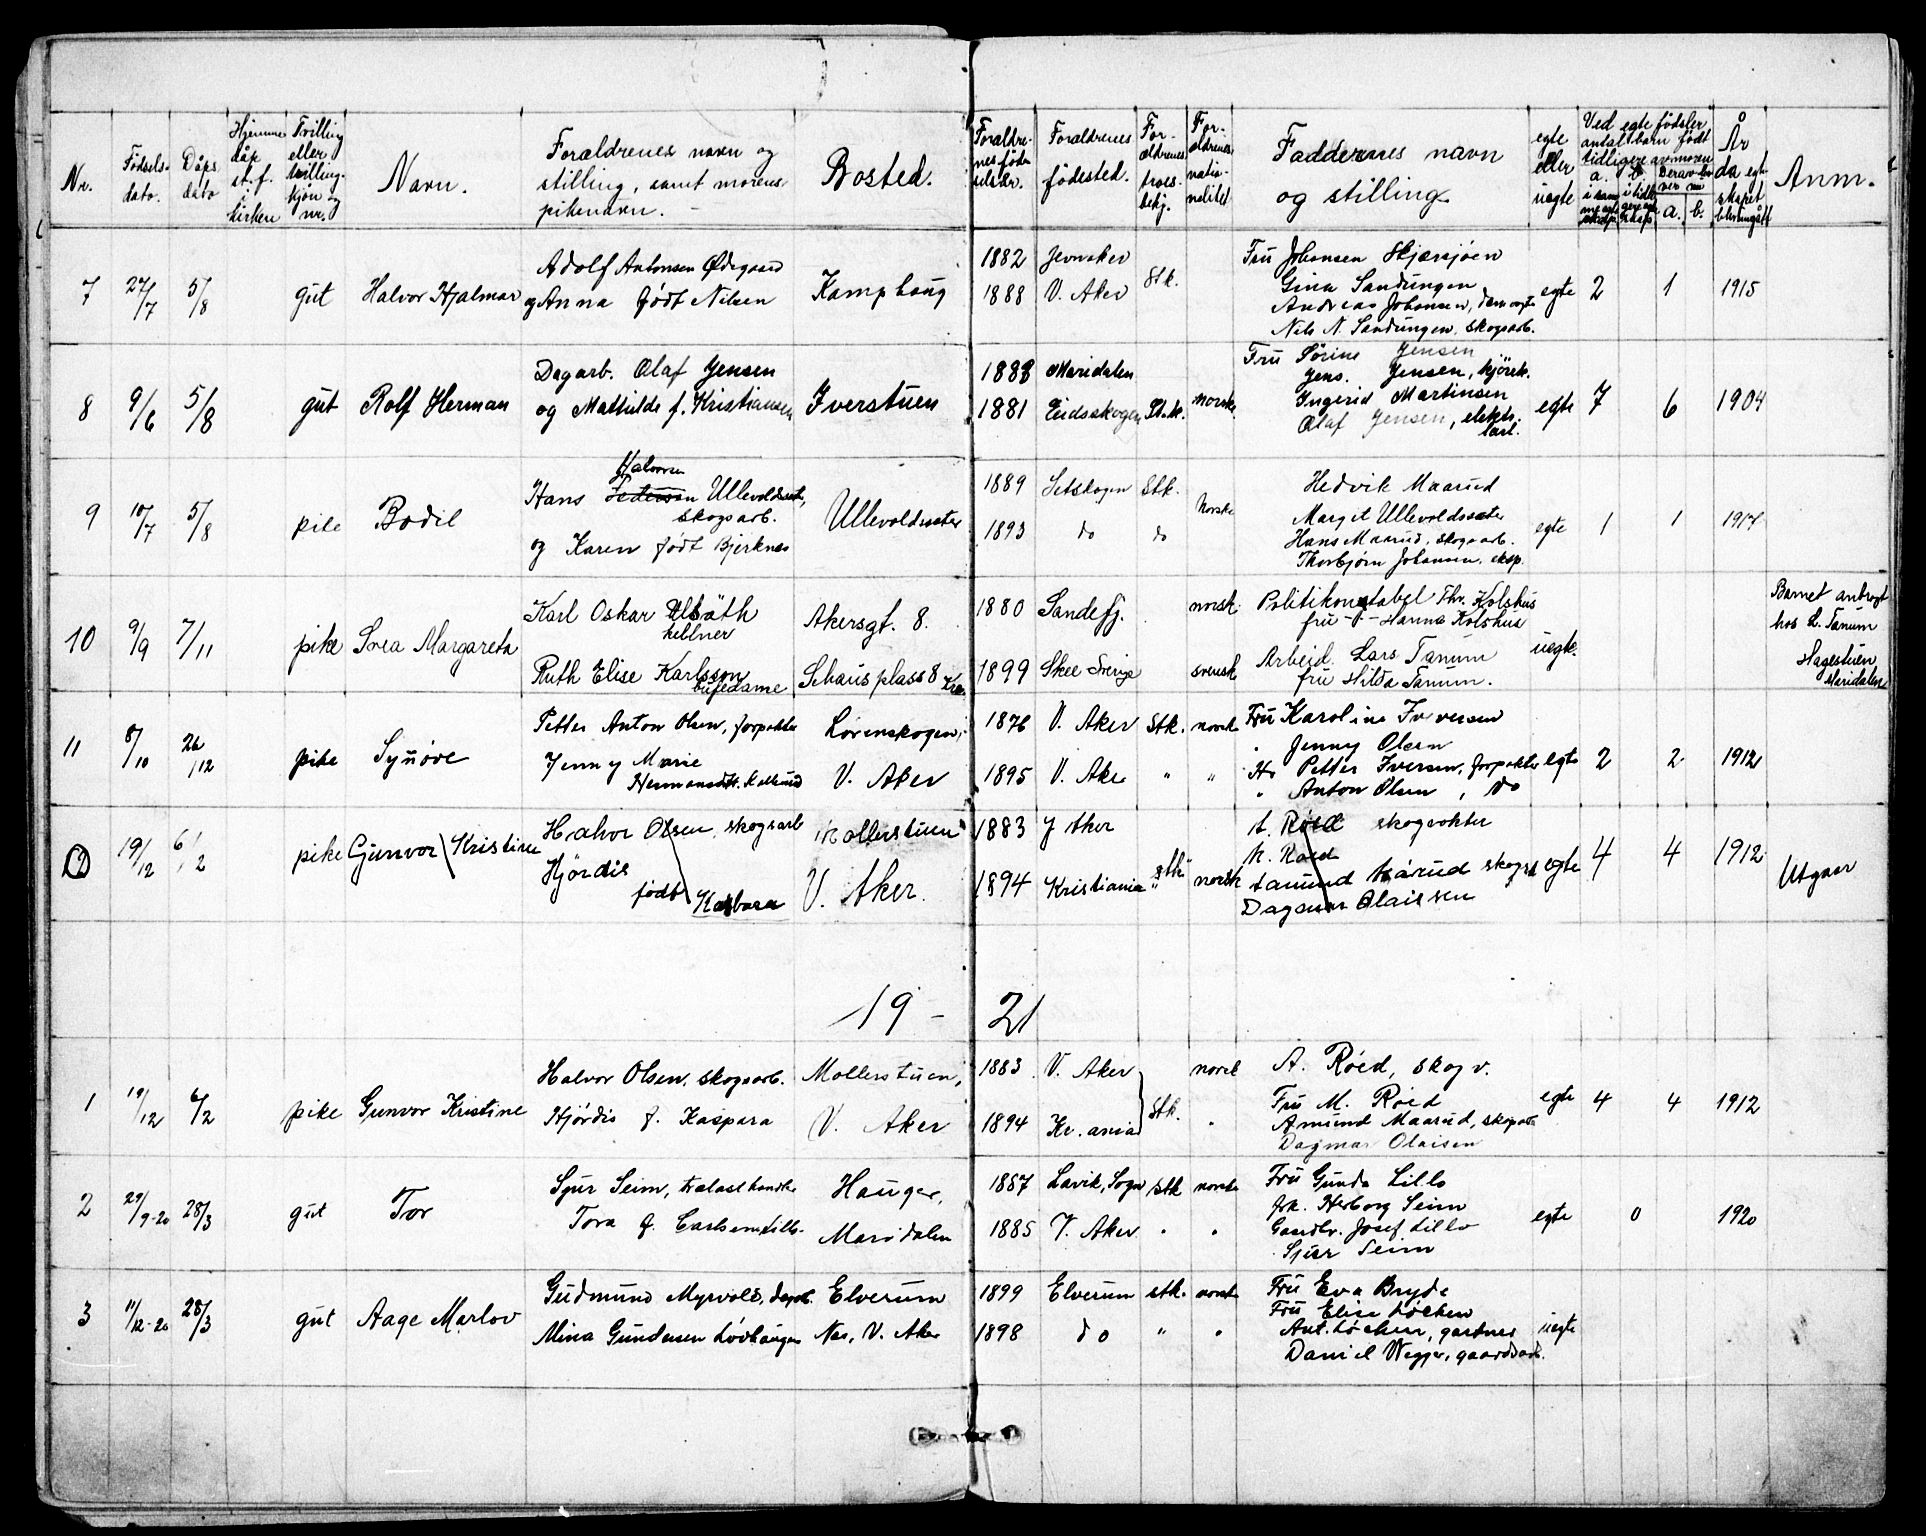 Nr.
Fødsels-dato.
Dåps dato
Hjemme dåp st.f. i kirken
Tvilling eller trilling. kjøn og nr.
Navn.
Forældrenes navn og
stilling, samt morens
pikenavn.
Bosted.
Forældrenes fødselsår.
Forældrenes fødested.
Forældrenes troesbekj.
Forældrenes nationalitet
Faddernes navn
og stilling
egte eller uegte
Ved egte fødsler
antal barn født
tidligere av moren
a. b.
a. b.
År da egteskapet blev indgått
Anm.
7 27/7 5/8 gut Halvor Hjalmar
Adolf Antonsen Ødegaard
og Anna født Nilsen
Kamphaug
1882 Jevnaker
1888 V. Aker
Stk.
Fru Johansen Skjærsjøen
Gina Sandungen
Andreas Johansen, damvogt
Nils N. Sandungen, skogsarb.
egte 2 1 1915
8 9/6 5/8 gut Rolf Herman
Dagarb. Olaf Jensen
og Mathilde f. Kristiansen
Iverstuen
1888 Maridalen
1881 Eidsskogen St.k. norske
Fru Sørine Jensen
Jens. Jensen, kjørek.
Ingerid Martinsen
Olaf Jensen, elektr.
egte 7 6 1904
9 10/7 5/8 pike Bodil
Halvorsen
Hans Pedersen Ullevoldsæt,
skogsarb.
og Karen født Bjerknes
Ullevoldsæter
1889 Setskogen Stk.
1893 do do
Norske
Hedvik Maarud
Margit Ullevoldssæter
Hans Maarud, skogsarb.
Thorbjørn Johansen, eksp.
egte 1 1 1917
10 9/9 7/11 pike Svea Margareta
Karl Oskar
kellner
Ruth Elise Karlsson
bufedame
Akersgt. 8.
Schaus plass 8 Kra.
1880 Sandefj. norsk
1899 Skee Sverige svensk
Politikonstabel Thv. Kolshus
fru -"- Hanna Kolshus
Arbeid. Lars Tanum
fru Hilda Tanum.
uegte.
Barnet antragt
hos L. Tanum
Hagestuen
Maridalen
11 8/10 26/12 pike Synøve
Petter Anton Olsen, forpakter
Jenny Marie
Lørenskogen,
V. Aker
1876 V. Aker Stk. norsk
1895 V. Aker " "
Fru Karoline Iversen
" Jenny Olsen
Hr Petter Iversen, forpakter
" Anton Olsen, do
egte 2 2 1912
12 19/12 6/2 pike Gunvor Kristine
Halvor Olsen, skogsarb
Hjördis
født Kasbara
Mollerstuen
V. Aker.
1883 V Aker
1894 Kristiania stk. norsk
A. Røed skogvokter
M. Røed
Amund Mårud skogsa
Dagmar Olaissen
egte 4 4 1912
Utgaar
19 - 21
1 19/12 6/2 pike Gunvor Kristine
Halvor Olsen, skogsarb.
Hjørdis f. Kaspara
Mollerstuen,
V. Aker
1883 V. Aker norsk
1894 Kr.ania Stk. "
A. Røed, skogv.
Fru M. Røed
Amund Maarud, skogsarb
Dagmar Olaisen
egte 4 4 1912
2 29/9-20 28/3 gut Tor
Sjur Seim, trælasthandler
Tora f. Carlsen Lillo.
Hauger,
Maridalen
1887 Lavik, Sogn stk norske
1885 V. Aker " "
Fru Gunda Lillo
frk. Herborg Seim
Gaardbr. Josef Lillo
Sjur Seim
egte 0 1920
3 11/12-20 28/3 gut Aage Marlov
Gudmund Myrvold, dagarb.
Mina Gundersen Løvhaugen
Elverum
Nes, V. Aker
1899 Elverum stk. norske
1898 do " "
Fru Eva Bryde
Fru Elise Løcken
Ant. Løcken, gartner
Daniel Wegger, gaardsarb.
uegte